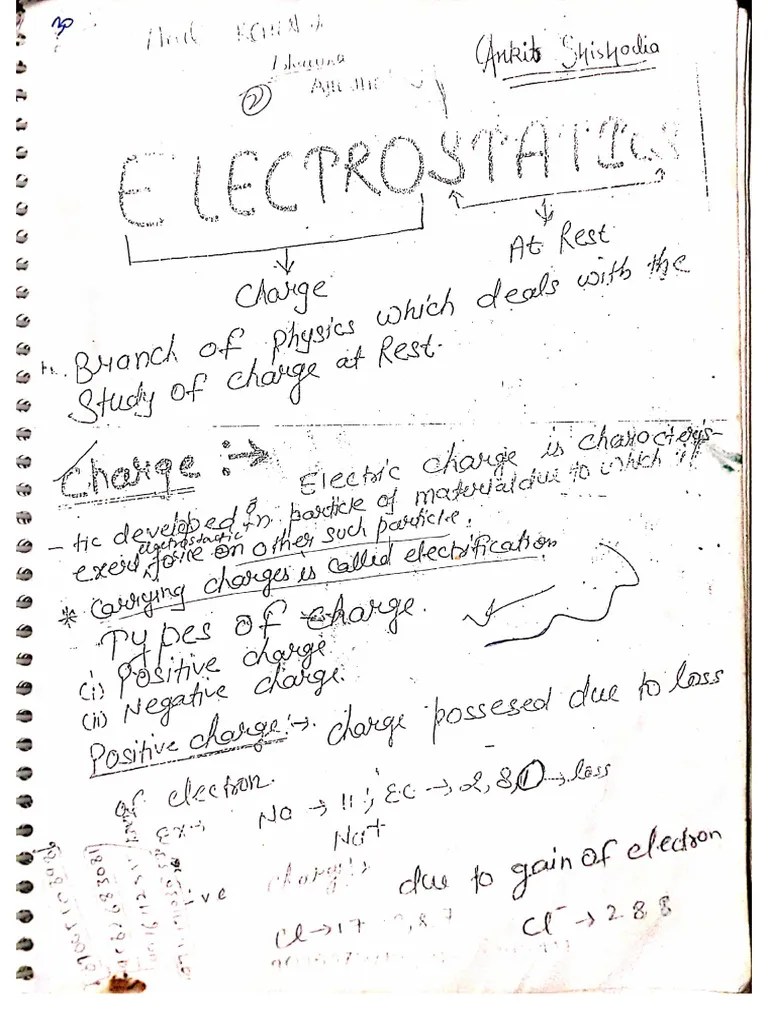 Ankit Shishodia
②
ELECTROSTATICS
Charge
At Rest
Branch of physics which deals with the
Study of charge at Rest.
Charge :→ Electric charge is characteris-
-tic developed in particle of material due to which it
exert electrostactic force on other such particle.
* Carrying charges is called electrification
Types of charge.
(i) Positive charge
(ii) Negative charge.
Positive charge:→ charge possesed due to loss
of electron.
Ex:→ Na → 11 ; EC → 2, 8, 1 → loss
Na+
ive charge:→ due to gain of electron
Cl → 17 2,8 7 Cl⁻ → 2 8 8